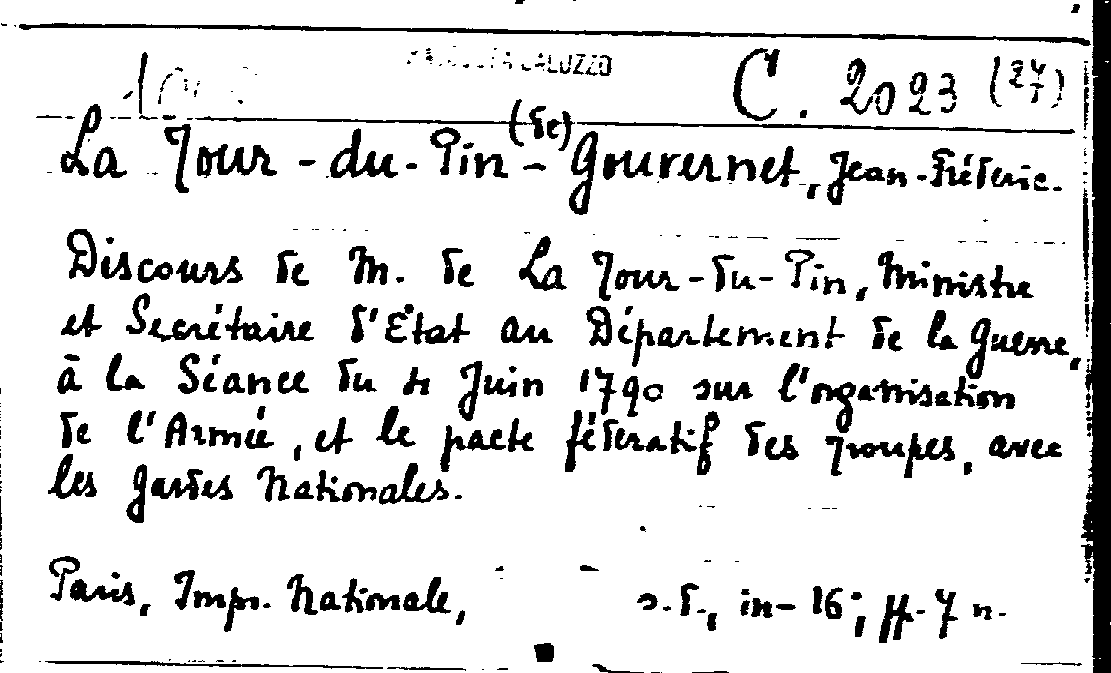 SALUZZO C. 2023 (27/7)
La Tour-du-Pin-(de)Gouvernet, Jean-Fréderic.
Discours de M. de La Tour-du-Pin, Ministre
et Secrétaire d'Etat au Département de la Guerre,
à la Séance du 4 Juin 1790 sur l'organisation
de l'Armée, et le pacte féderatif des Troupes, avec
les Gardes Nationales.
Paris, Impr. Nationale, s.d., in-16°; ff. 7 n.